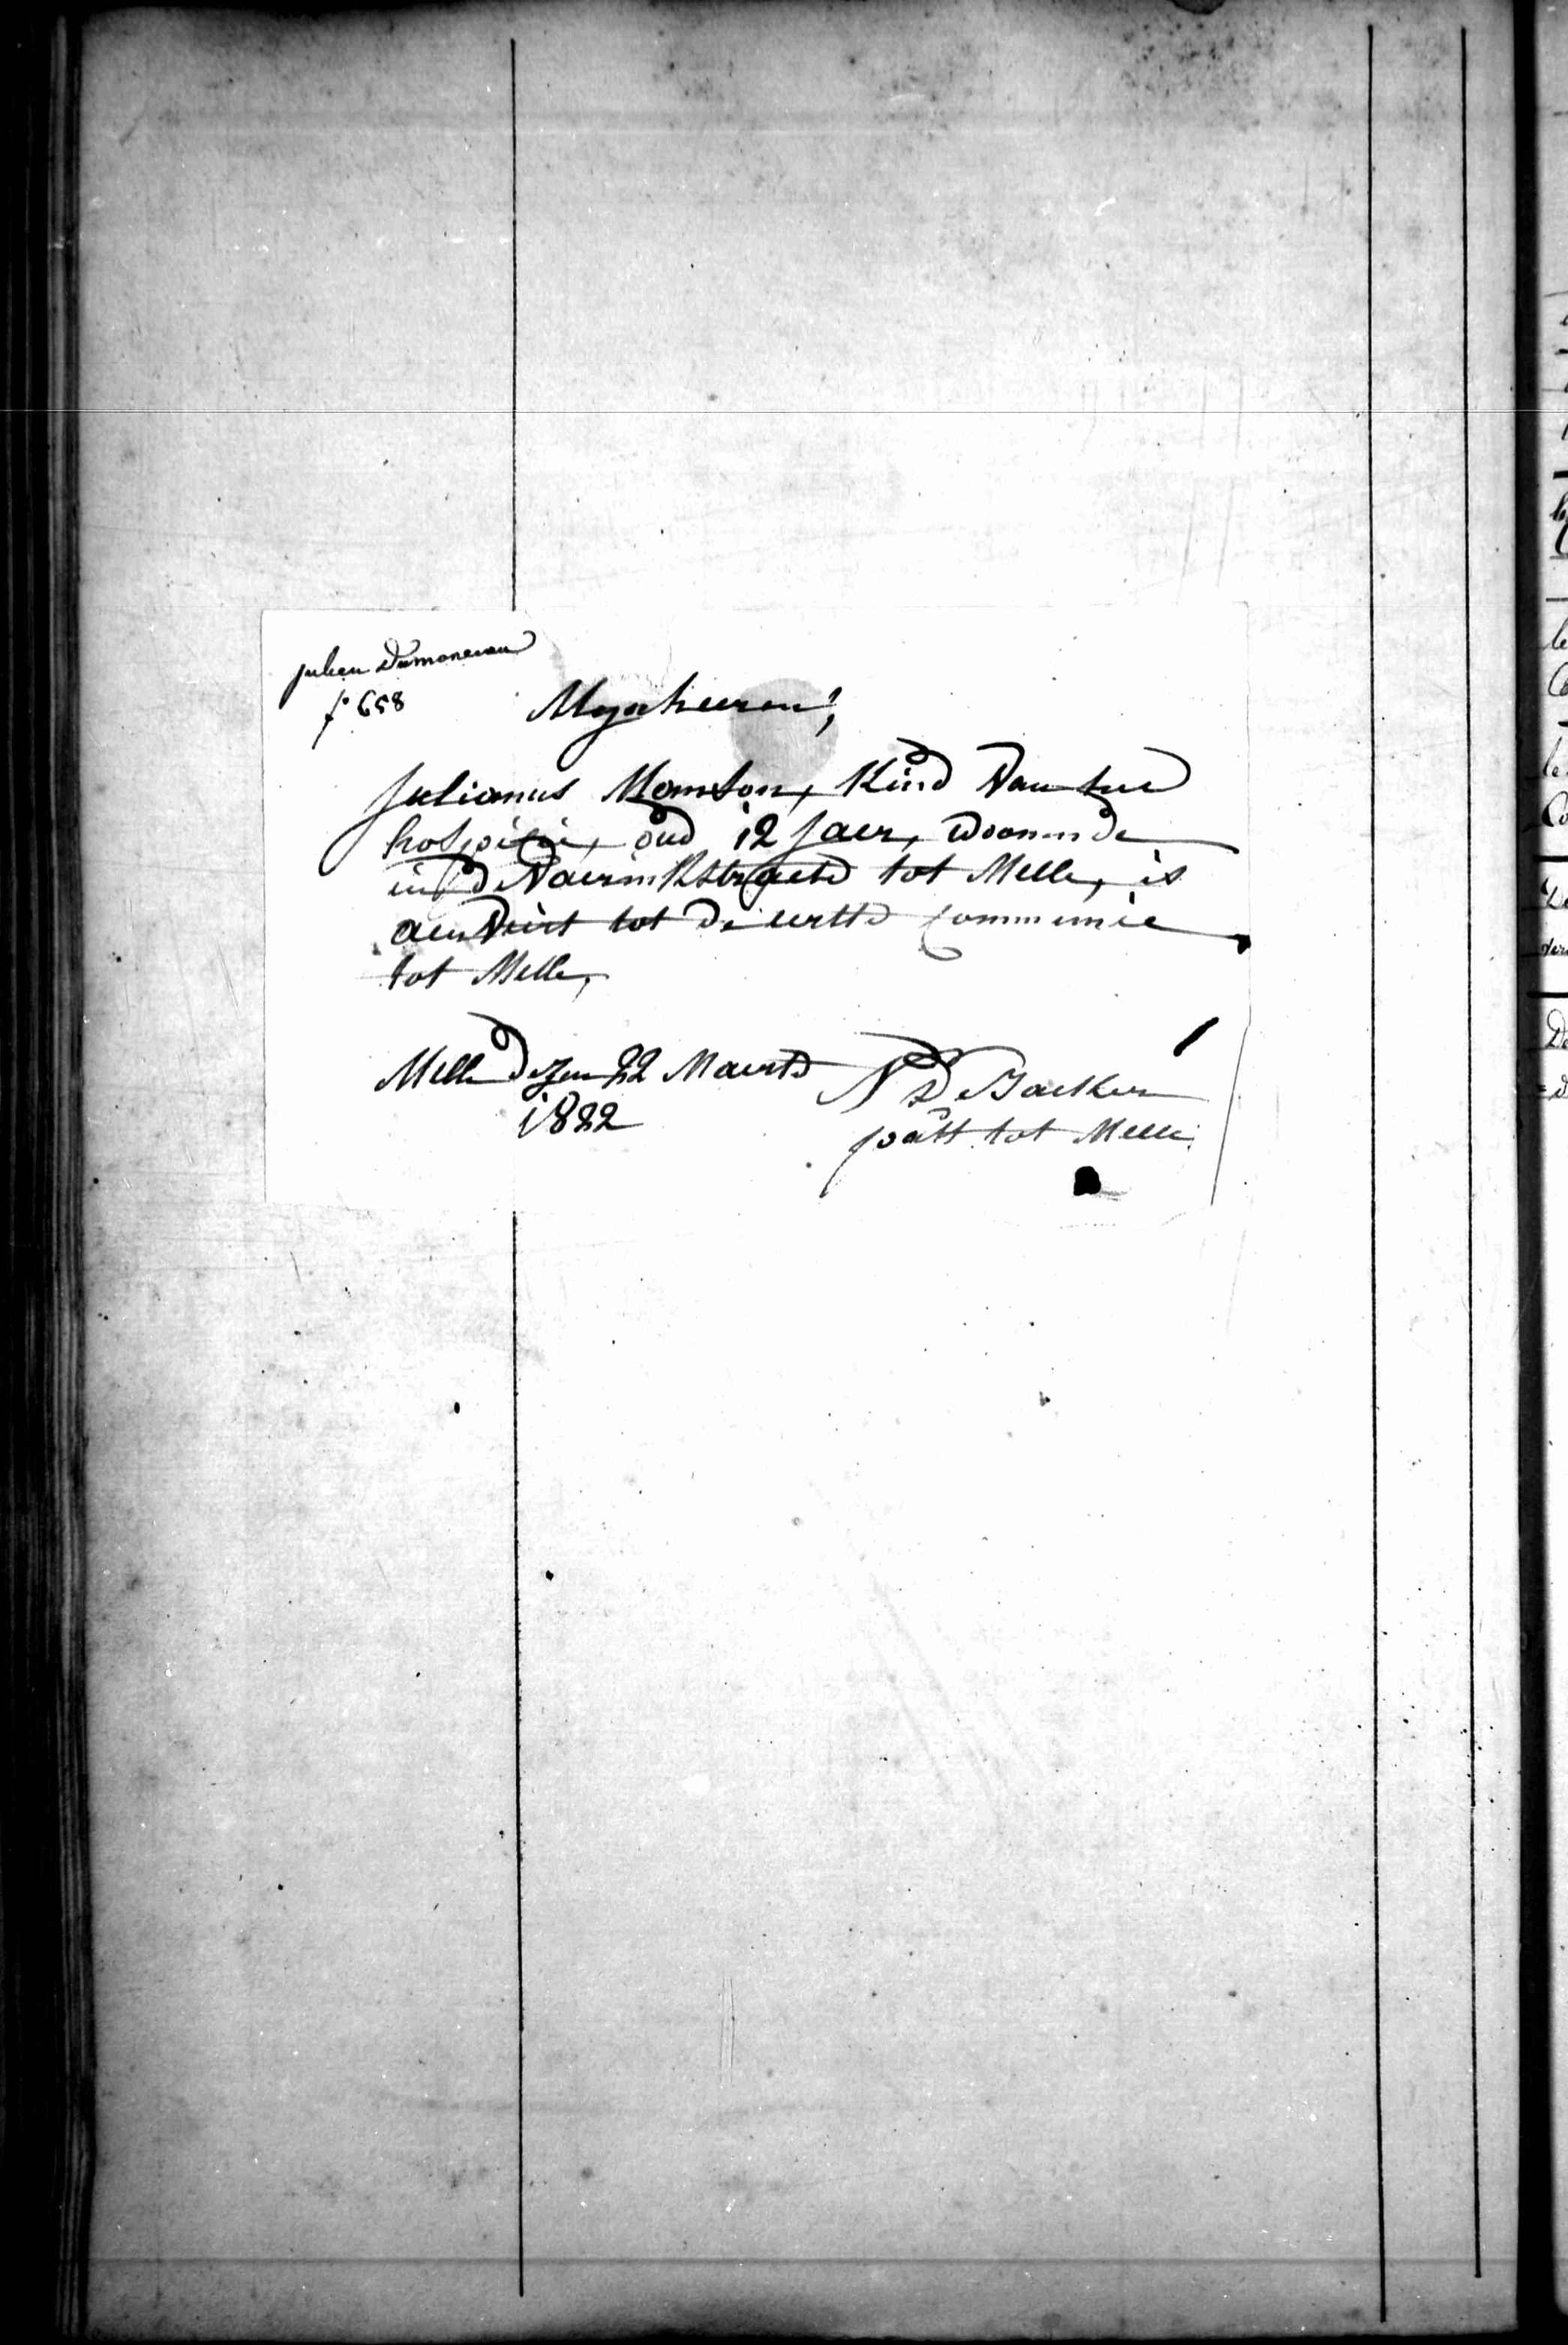 julien Dumonceau
f° 658
Mynheeren,
Julianus Monton, Kind van het
hospitie, oud 12 Jaer, woonende
in de Vaerinkstraete tot Melle, is
aenveirt tot de eerste Communie
tot Melle,
Melle dezen 22 Maerte
1822
N De Backer
past tot Melle